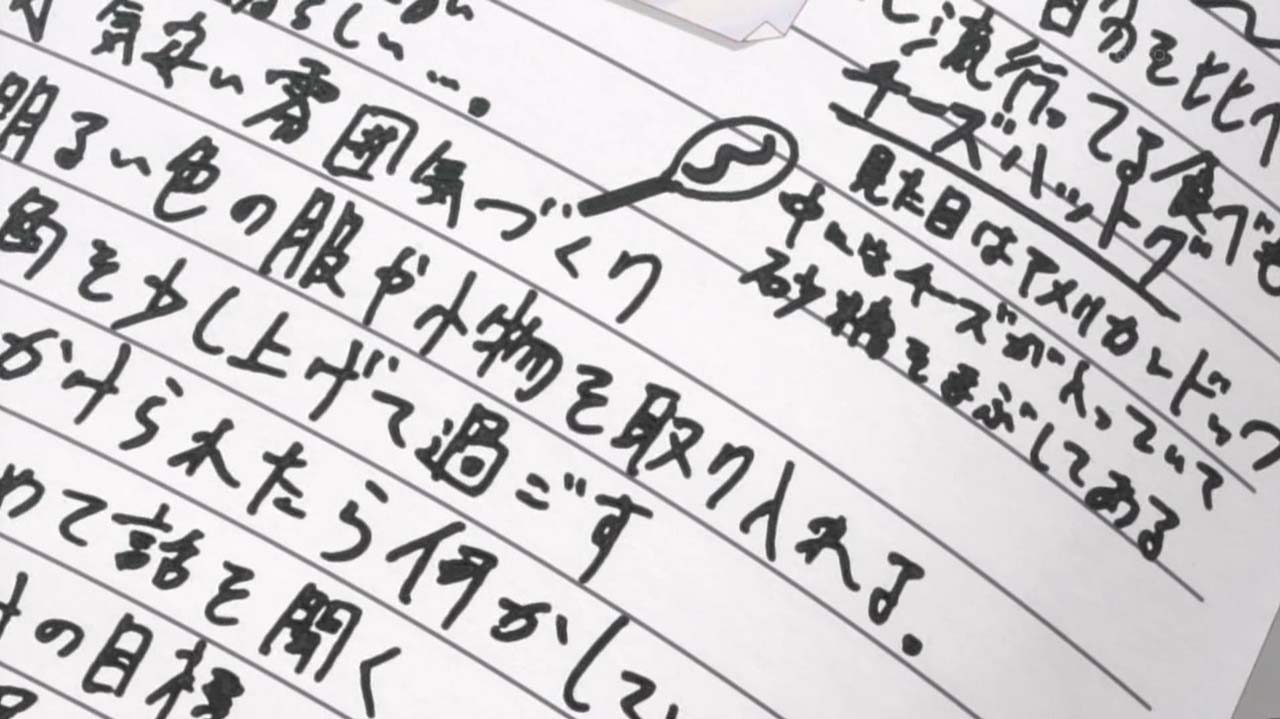 らしい…。
気安い雰囲気づくり
明るい色の服や小物を取り入れる。
角を少し上げて過ごす
かけられたら何かし
めて話を聞く
の目標
自分を比べ
流行ってる食べも
チーズハットグ
見た目はアメリカンドッグ
中にはチーズが入っていて
砂糖をまぶしてある